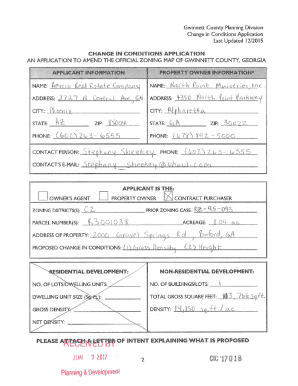 Gwinnett County Planning Division
Change in Conditions Application
Last Updated 12/2015
CHANGE IN CONDITIONS APPLICATION
AN APPLICATION TO AMEND THE OFFICIAL ZONING MAP OF GWINNETT COUNTY, GEORGIA
APPLICANT INFORMATION PROPERTY OWNER INFORMATION*
NAME: Amerco Real Estate Company NAME: North Point Ministries, Inc
ADDRESS: 2727 N Central Ave, 5N ADDRESS: 4350 North Point Parkway
CITY: Phoenix CITY: Alpharetta
STATE: AZ ZIP: 85004 STATE: GA ZIP: 30022
PHONE: (602) 263-6555 PHONE: (678) 892-5000
CONTACT PERSON: Stephany Sheekey PHONE: (602) 263-6555
CONTACT'S E-MAIL: Stephany_sheekey@uhaul.com
APPLICANT IS THE:
OWNER'S AGENT PROPERTY OWNER CONTRACT PURCHASER
ZONING DISTRICT(S): C2 PRIOR ZONING CASE: RZ-95-093
PARCEL NUMBER(S): R3001038 ACREAGE:
ADDRESS OF PROPERTY: Gravel Springs Rd, Buford, GA
PROPOSED CHANGE IN CONDITIONS: (1) Gross Density (2) Height
RESIDENTIAL DEVELOPMENT: NON-RESIDENTIAL DEVELOPMENT:
NO. OF LOTS/DWELLING UNITS NO. OF BUILDINGS/LOTS: 1
DWELLING UNIT SIZE (Sq. Ft.): TOTAL GROSS SQUARE FEET:
GROSS DENSITY: DENSITY: 14,150 sq.ft/ac
NET DENSITY:
PLEASE ATTACH A LETTER OF INTENT EXPLAINING WHAT IS PROPOSED
RECEIVED BY
JUN 7 2017
2
CIC '17 018
Planning & Development